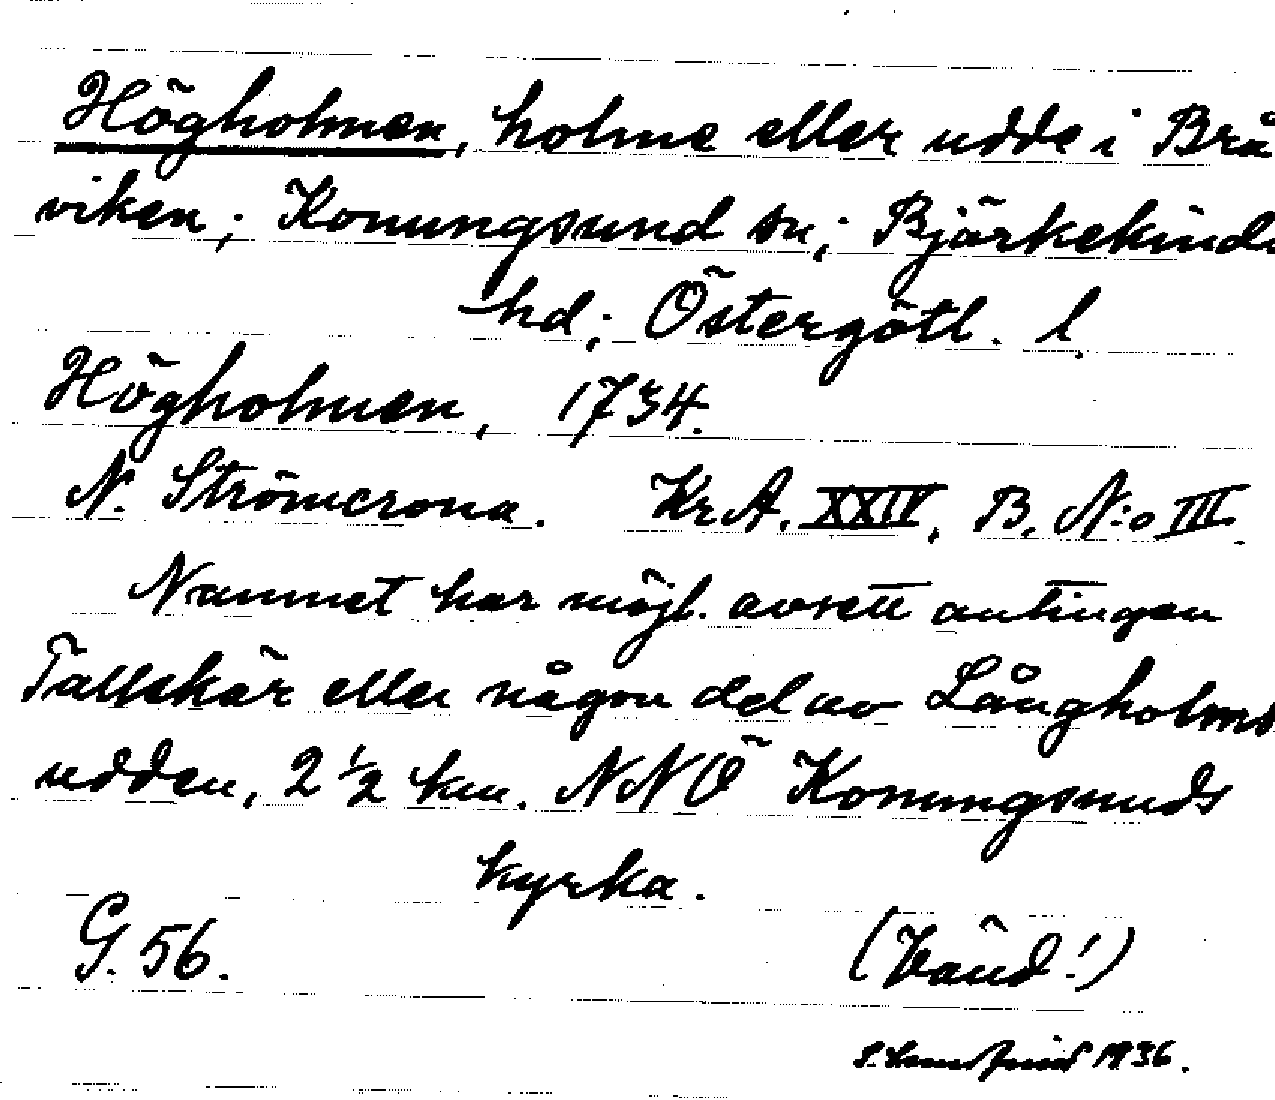 Högholmen, holme eller udde i Brå
viken; Konungsund sn; Bjärkekinds
hd; Östergötl. l.
Högholmen, 1734.
N. Strömcrona. Kr.A. XXIV, B. N:o III.
Namnet har möjl. avsett antingen
Tallskär eller någon del av Långholms
udden, 2 1/2 km. NNÖ Konungsunds
kyrka.
G. 56. (Vänd!)
1936.